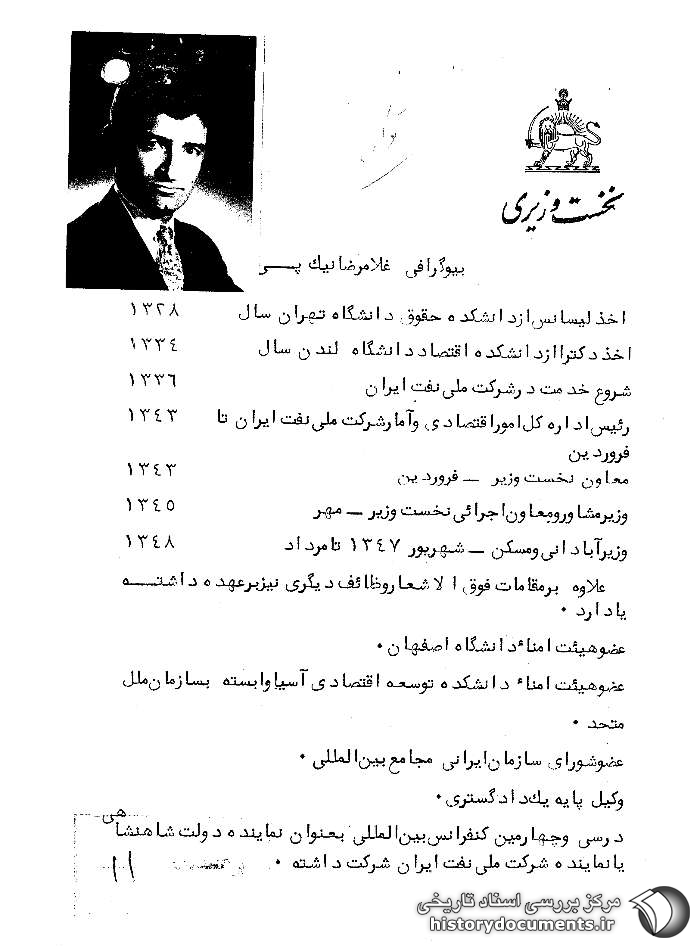 نخست وزیری
بیوگرافی غلامرضا نیک پـــی
اخذ لیسانس از دانشکده حقوق دانشگاه تهران سال ۱۳۲۸
اخذ دکترا از دانشکده اقتصاد دانشگاه لندن سال ۱۳۳۴
شروع خدمت در شرکت ملی نفت ایران ۱۳۳۶
رئیس اداره کل امور اقتصادی و آمار شرکت ملی نفت ایران تا ۱۳۴۳
فروردین
معاون نخست وزیر ـ فروردین ۱۳۴۳
وزیر مشاور و معاون اجرائی نخست وزیر ـ مهر ۱۳۴۵
وزیر آبادانی و مسکن ـ شهریور ۱۳۴۷ تا مرداد ۱۳۴۸
علاوه بر مقامات فوق الاشعار وظائف دیگری نیز بر عهده داشتـــه
یا دارد ۰
عضو هیئت امناء دانشگاه اصفهان ۰
عضو هیئت امناء دانشکده توسعه اقتصادی آسیا وابسته بسازمان ملل
متحد ۰
عضو شورای سازمان ایرانی مجامع بین المللی ۰
وکیل پایه یک دادگستری ۰
در سی و چهارمین کنفرانس بین المللی بعنوان نماینده دولت شاهنشاهی
یا نماینده شرکت ملی نفت ایران شرکت داشته ۰
۱۱
مرکز بررسی اسناد تاریخی
historydocuments.ir